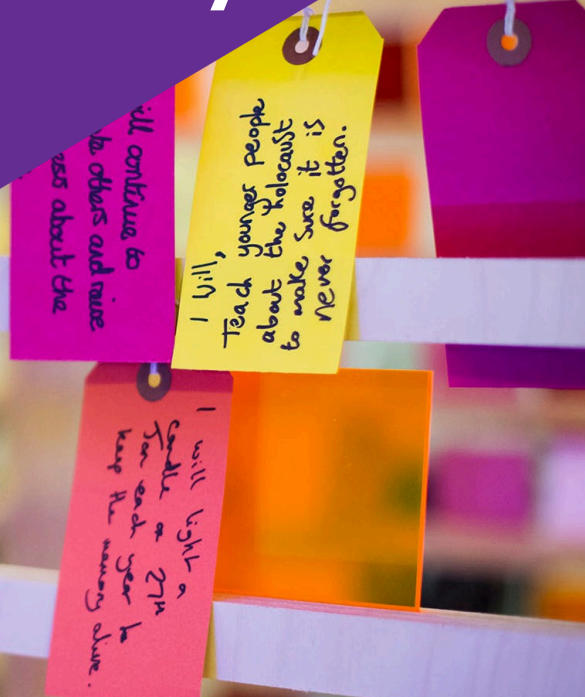 ill continue to
others and raise
ess about the
I will,
Teach younger people
about the Holocaust
to make sure it is
never forgotten.
I will light a
candle on 27th
Jan each year to
keep the memory alive.